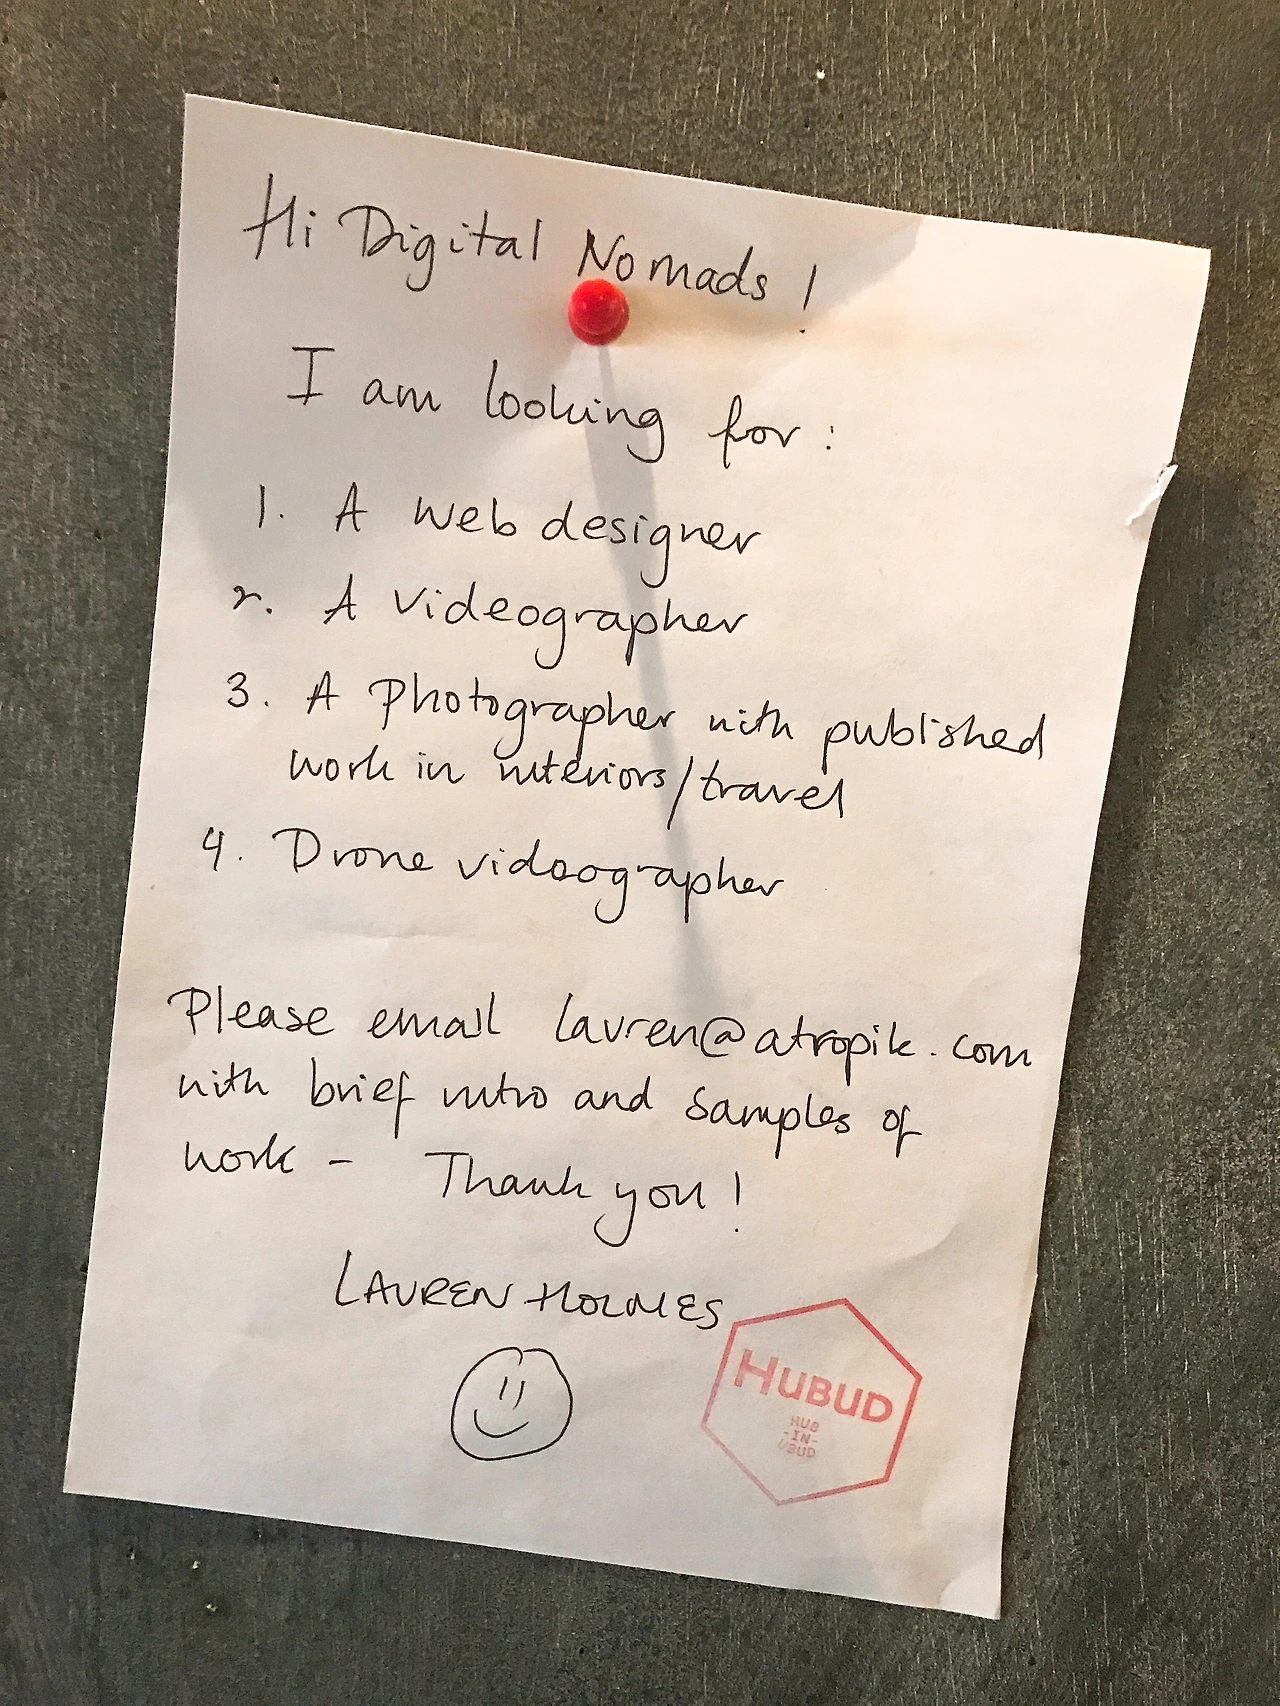 Hi Digital Nomads!
I am looking for:
1. A web designer
2. A videographer
3. A Photographer with published
work in interiors/travel
4. Drone videographer
Please email lauren@atropik.com
with brief intro and samples of
work - Thank you!
LAUREN HOLMES
HUBUD
HUB
-IN-
UBUD